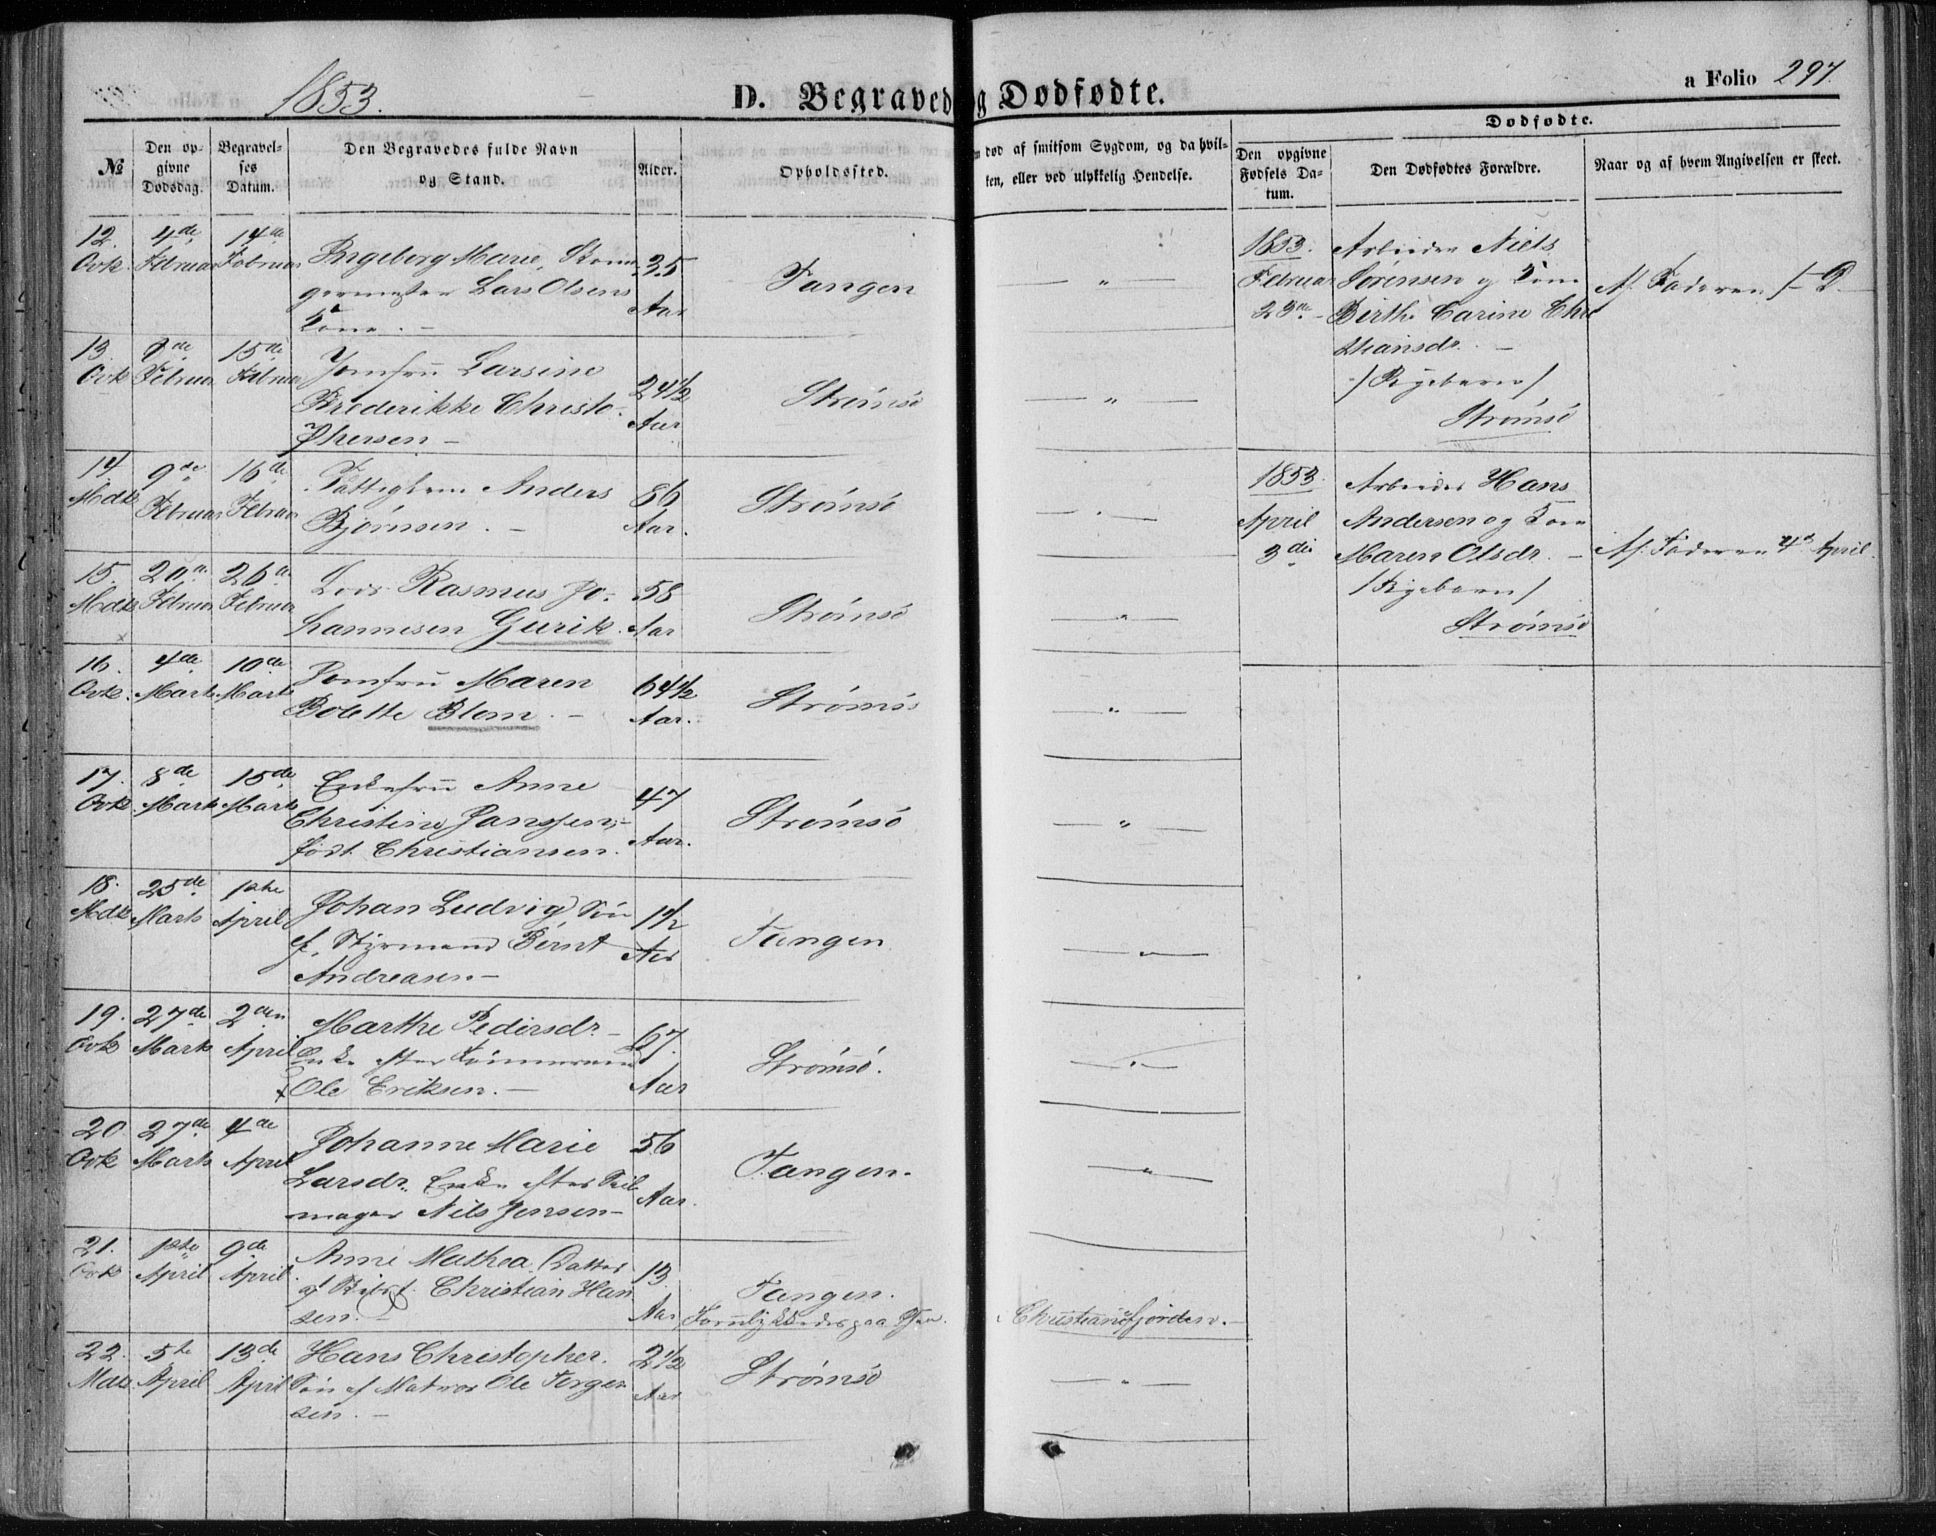 1853.
D. Begraved
g Dødfødte.
a Folio 297.
No
Den opgivne Dødsdag.
Begravelses Datum.
Den Begravedes fulde Navn og Stand.
Alder.
Opholdssted.
død af smitsom Sygdom, og da hvilken, eller ved ulykkelig Hendelse.
Dødfødte.
Den opgivne Fødsels Datum.
Den Dødfødtes Forældre.
Naar og af hvem Angivelsen er skeet.
12. 4de 14de Ingeborg Marie, 35
Qvk. Februar Februar Lars Olsens Aar Tangen — " —
Kone. —
13. 8de 15de Jomfru Larsine 24½
Qvk Februar Februar Frederikke Christo- Aar Strømsø — " —
phersen —
14 9de 16de Fattiglem Anders 86
Mdk Februar Februar Bjørnsen. — Aar. Strømsø — " —
15. 20de 26de Lods Rasmus Jo- 58
Mdk Februar Februar hannesen Gurik. Aar Strømsø — " —
16. 4de 10de Jomfru Maren 64½
Qvk. Marts Marts Bolette Blom. — Aar. Strømsø — " —
17. 8de 15de Enkefru Anne 47
Qvk. Marts Marts Christine Janssen, Aar. Strømsø — " —
født Christiansen.
18. 25de 1ste Johan Ludvig, Søn 1½
Mdk Marts April af Styrmand Bernt Aar Tangen — " —
Andreasen —
19. 27de 2den Marthe Pedersdr. — 67.
Qvk Marts April Enke efter Tømmermd Aar Strømsø. — " —
Ole Eriksen. —
20 27de 4de Johanne Marie 56
Qvk Marts April Larsdr. Enke efter Seil Aar. Tangen. — " —
mager Nils Jensen —
21. 1ste 9de Anne Mathea, Datter 13
Qvk April April af Christian Han Aar Tangen.
sen. — Forulykkedes paa Christianiafjorden. —
22. 5te 13de Hans Christopher. 2½
Mdk. April April Søn af Matros Ole Torger Aar Strømsø — " —
sen. —
1853. Arbeider Niels
Februar Sørensen og Kone Af Faderen
23de — Birthe Carine Chri
stiansdr. —
/Pigebarn/
Strømsø
1853. Arbeider Hans
April Andersen og Kone
3die Maren Olsdr. — Af Faderen 4de April.
/Pigebarn/
Strømsø